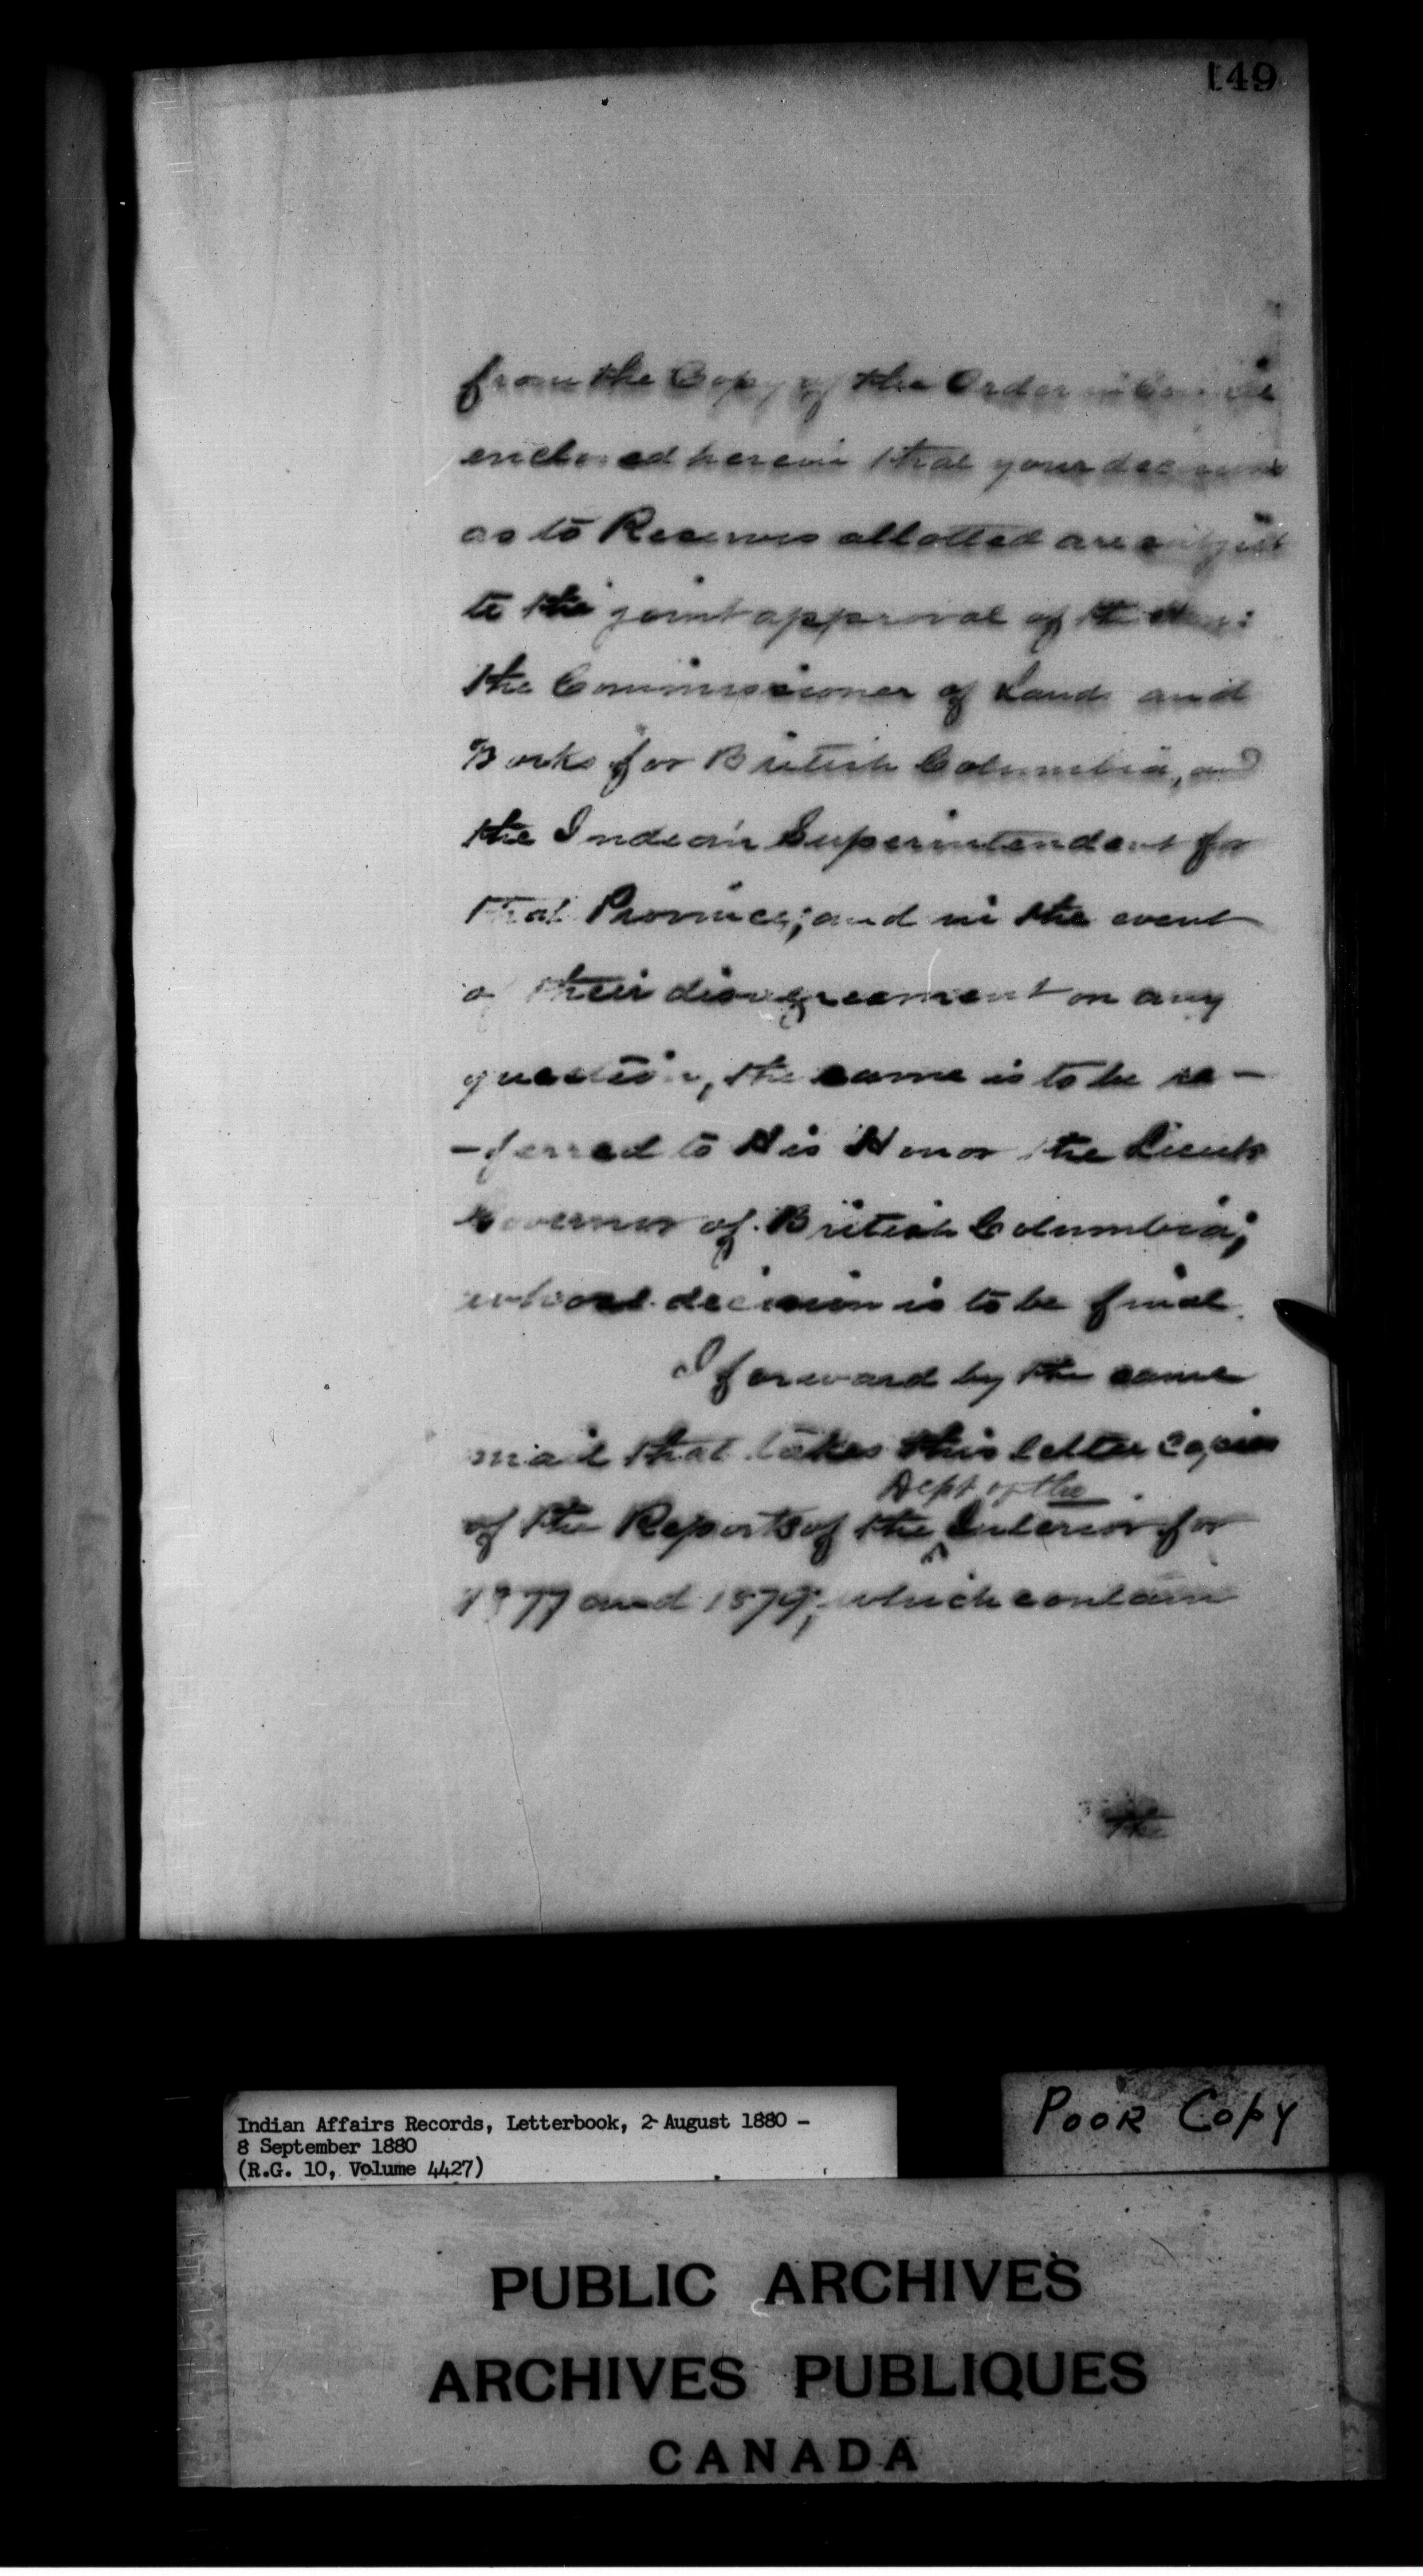 149
from the Copy of the Order in Council
enclosed herein that your decisions
as to Reserves allotted are subject
to the joint approval of the Hon:
the Commissioner of Lands and
Works for British Columbia, and
the Indian Superintendent for
that Province; and in the event
of their disagreement on any
question, the same is to be re-
-ferred to His Honor the Lieut
Governor of British Columbia;
whose decision is to be final.
I forward by the same
mail that takes this letter copies
Dept of the
of the Reports of the ^ Interior for
1877 and 1879, which contain
the
Indian Affairs Records, Letterbook, 2 August 1880 -
8 September 1880
(R.G. 10, Volume 4427)
POOR COPY
PUBLIC ARCHIVES
ARCHIVES PUBLIQUES
CANADA